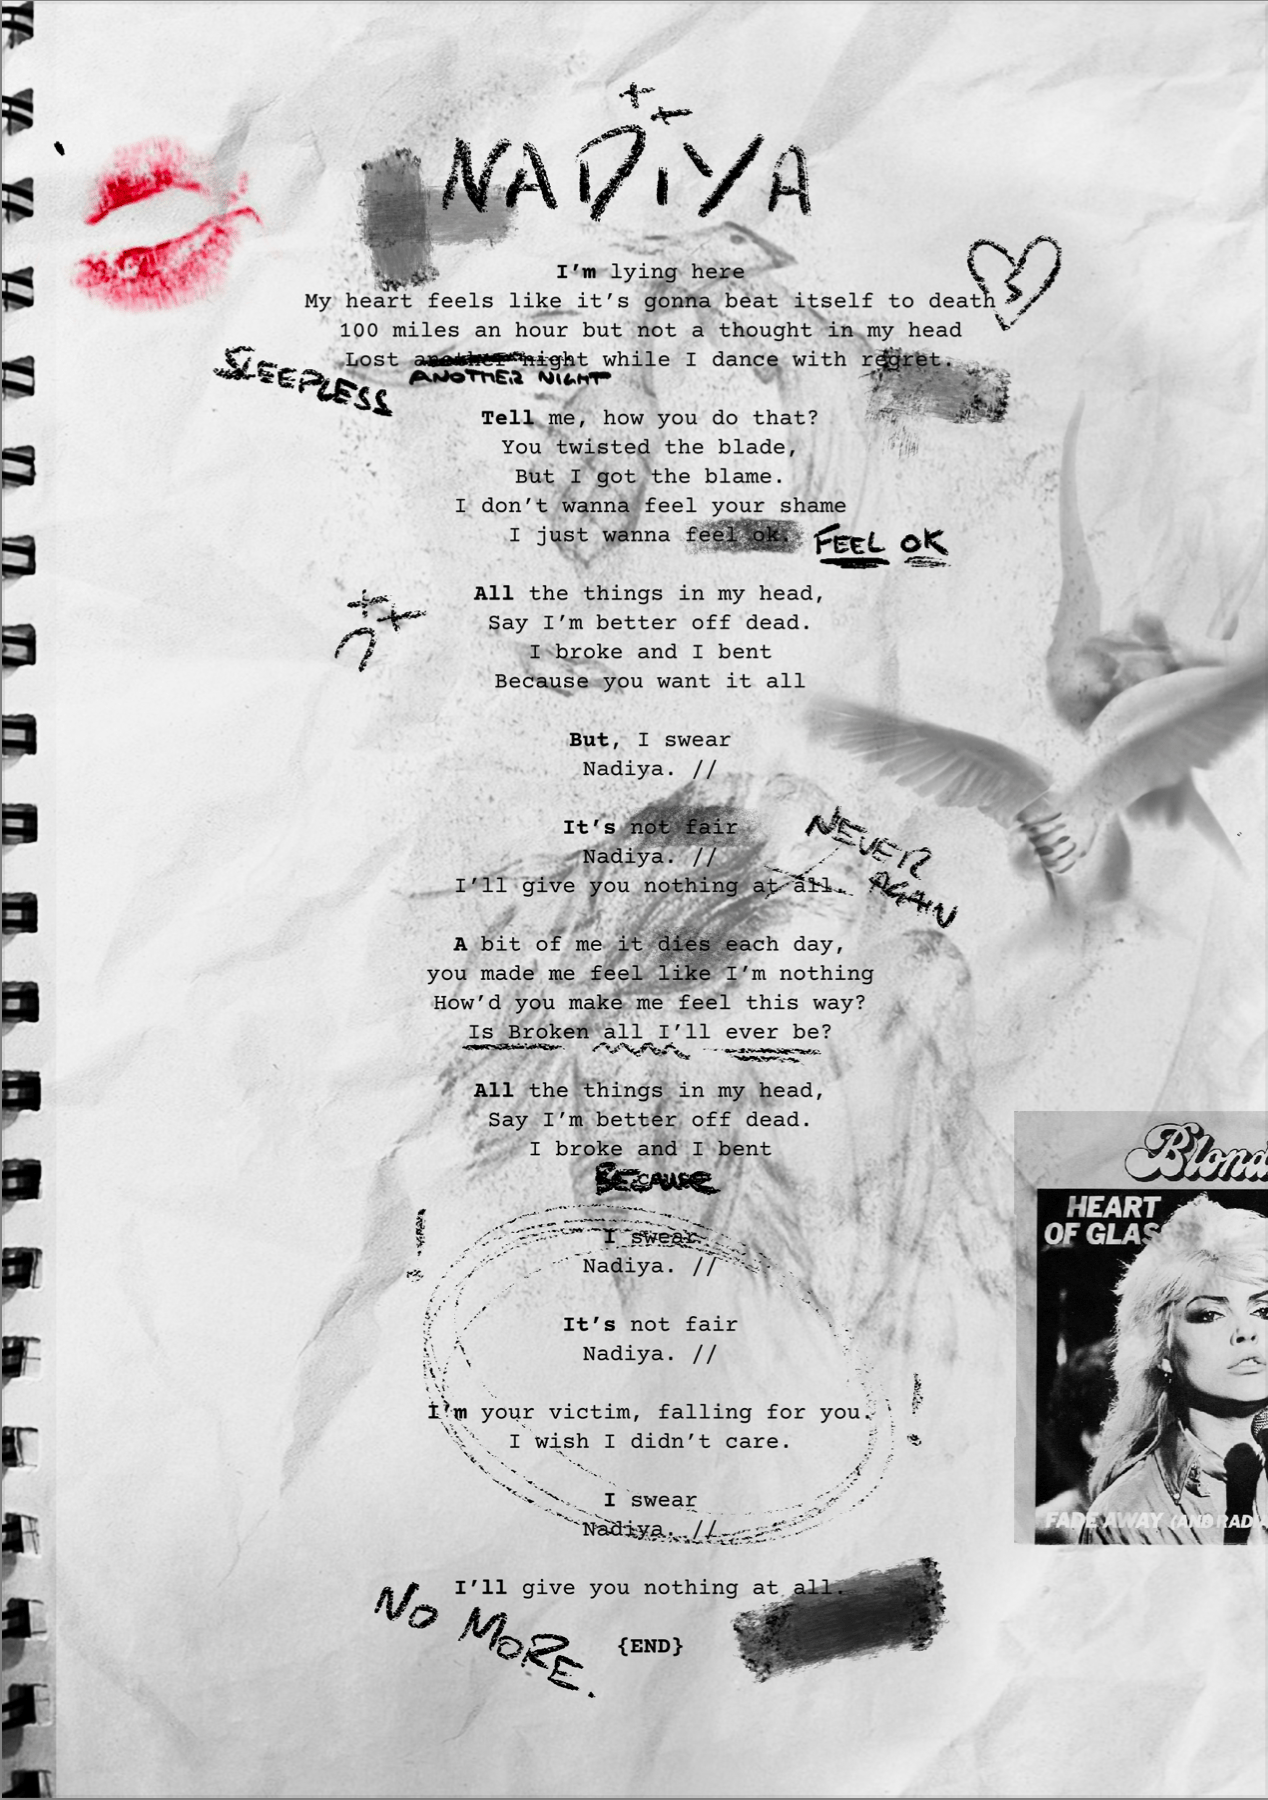 NADIYA
I'm lying here
My heart feels like it's gonna beat itself to death
100 miles an hour but not a thought in my head
Lost another night while I dance with regret.
SLEEPLESS
ANOTHER NIGHT
Tell me, how you do that?
You twisted the blade,
But I got the blame.
I don't wanna feel your shame
I just wanna feel ok.
FEEL OK
All the things in my head,
Say I'm better off dead.
I broke and I bent
Because you want it all
But, I swear
Nadiya. //
It's not fair
Nadiya. //
I'll give you nothing at all.
NEVER
AGAIN
A bit of me it dies each day,
you made me feel like I'm nothing
How'd you make me feel this way?
Is Broken all I'll ever be?
All the things in my head,
Say I'm better off dead.
I broke and I bent
BECAUSE
!
I swear.
Nadiya. //
It's not fair
Nadiya. //
I'm your victim, falling for you.
I wish I didn't care.
!
I swear
Nadiya. //
I'll give you nothing at all.
NO MORE.
{END}
Blond
HEART
OF GLAS
FADE AWAY (AND RAD